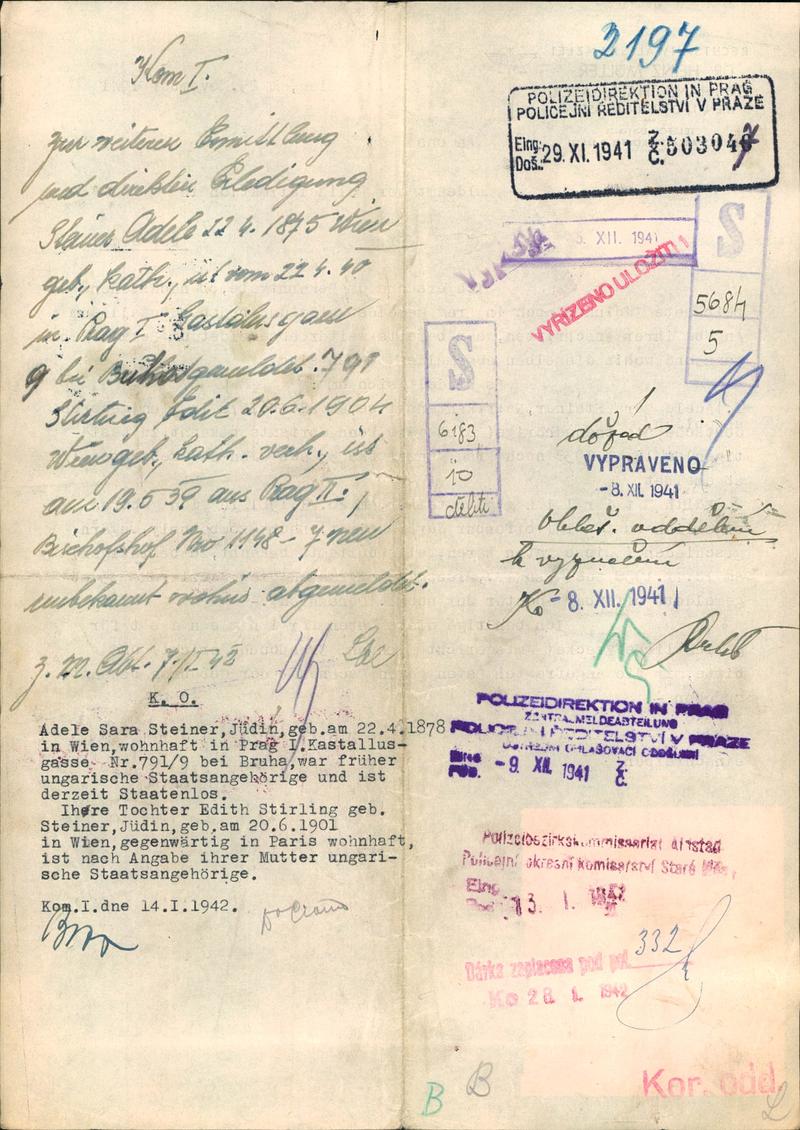 Kom I.
zur weiteren Ermittlung
und direkten Erledigung
Steiner Adele 22 4. 1875 Wien
geb., kath., ist vom 22 4. 40
in Prag I Kastalusgasse
9 bei Bruha gemeldet. 791
Stirling Edit 20.6.1904
Wien geb., kath. verh., ist
am 19.5 39 aus Prag II.,
Bischofshof Nro 1148 - 7 neu
unbekannt wohin abgemeldet.
K. O.
Adele Sara Steiner,Jüdin,geb.am 22.4.1878
in Wien,wohnhaft in Prag I.Kastallus-
gasse Nr.791/9 bei Bruha,war früher
ungarische Staatsangehörige und ist
derzeit Staatenlos.
Ihere Tochter Edith Stirling geb.
Steiner,Jüdin,geb.am 20.6.1901
in Wien,gegenwärtig in Paris wohnhaft,
ist nach Angabe ihrer Mutter ungari-
sche Staatsangehörige.
Kom.I.dne 14.I.1942.
2197
POLIZEIDIREKTION IN PRAG
POLICEJNÍ ŘEDITELSTVÍ V PRAZE
Eing.
Doš.
29. XI. 1941
Z.
Č.
503047
5. XII. 1941
VYŘÍZENO ULOŽITI
S
5684
5
S
6183
10
VYPRAVENO
- 8. XII. 1941
Ohlaš. oddělení
k vyznačení
- 8. XII. 1941
POLIZEIDIREKTION IN PRAG
ZENTRALMELDEABTEILUNG
POLICEJNÍ ŘEDITELSTVÍ V PRAZE
ÚSTŘEDNÍ OHLAŠOVACÍ ODDĚLENÍ
- 9. XII. 1941
Z.
Č.
Polizeibezirkskommissariat Altstadt
Policejní okresní komisařství Staré Město
Eing.
13. I. 1942
Dávka zaplacena pod pol.
332
28. I. 1942
B
B
Kor. odd.